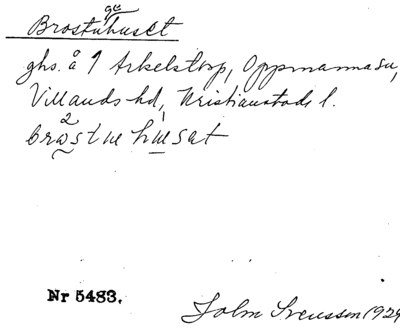 ga
Brostuhuset
ghs. å 9 Arkelstorp, Oppmanna sn,
Villands hd, Kristianstads l.
2
bråstuehusat
Nr 5483.
John Svensson 1929